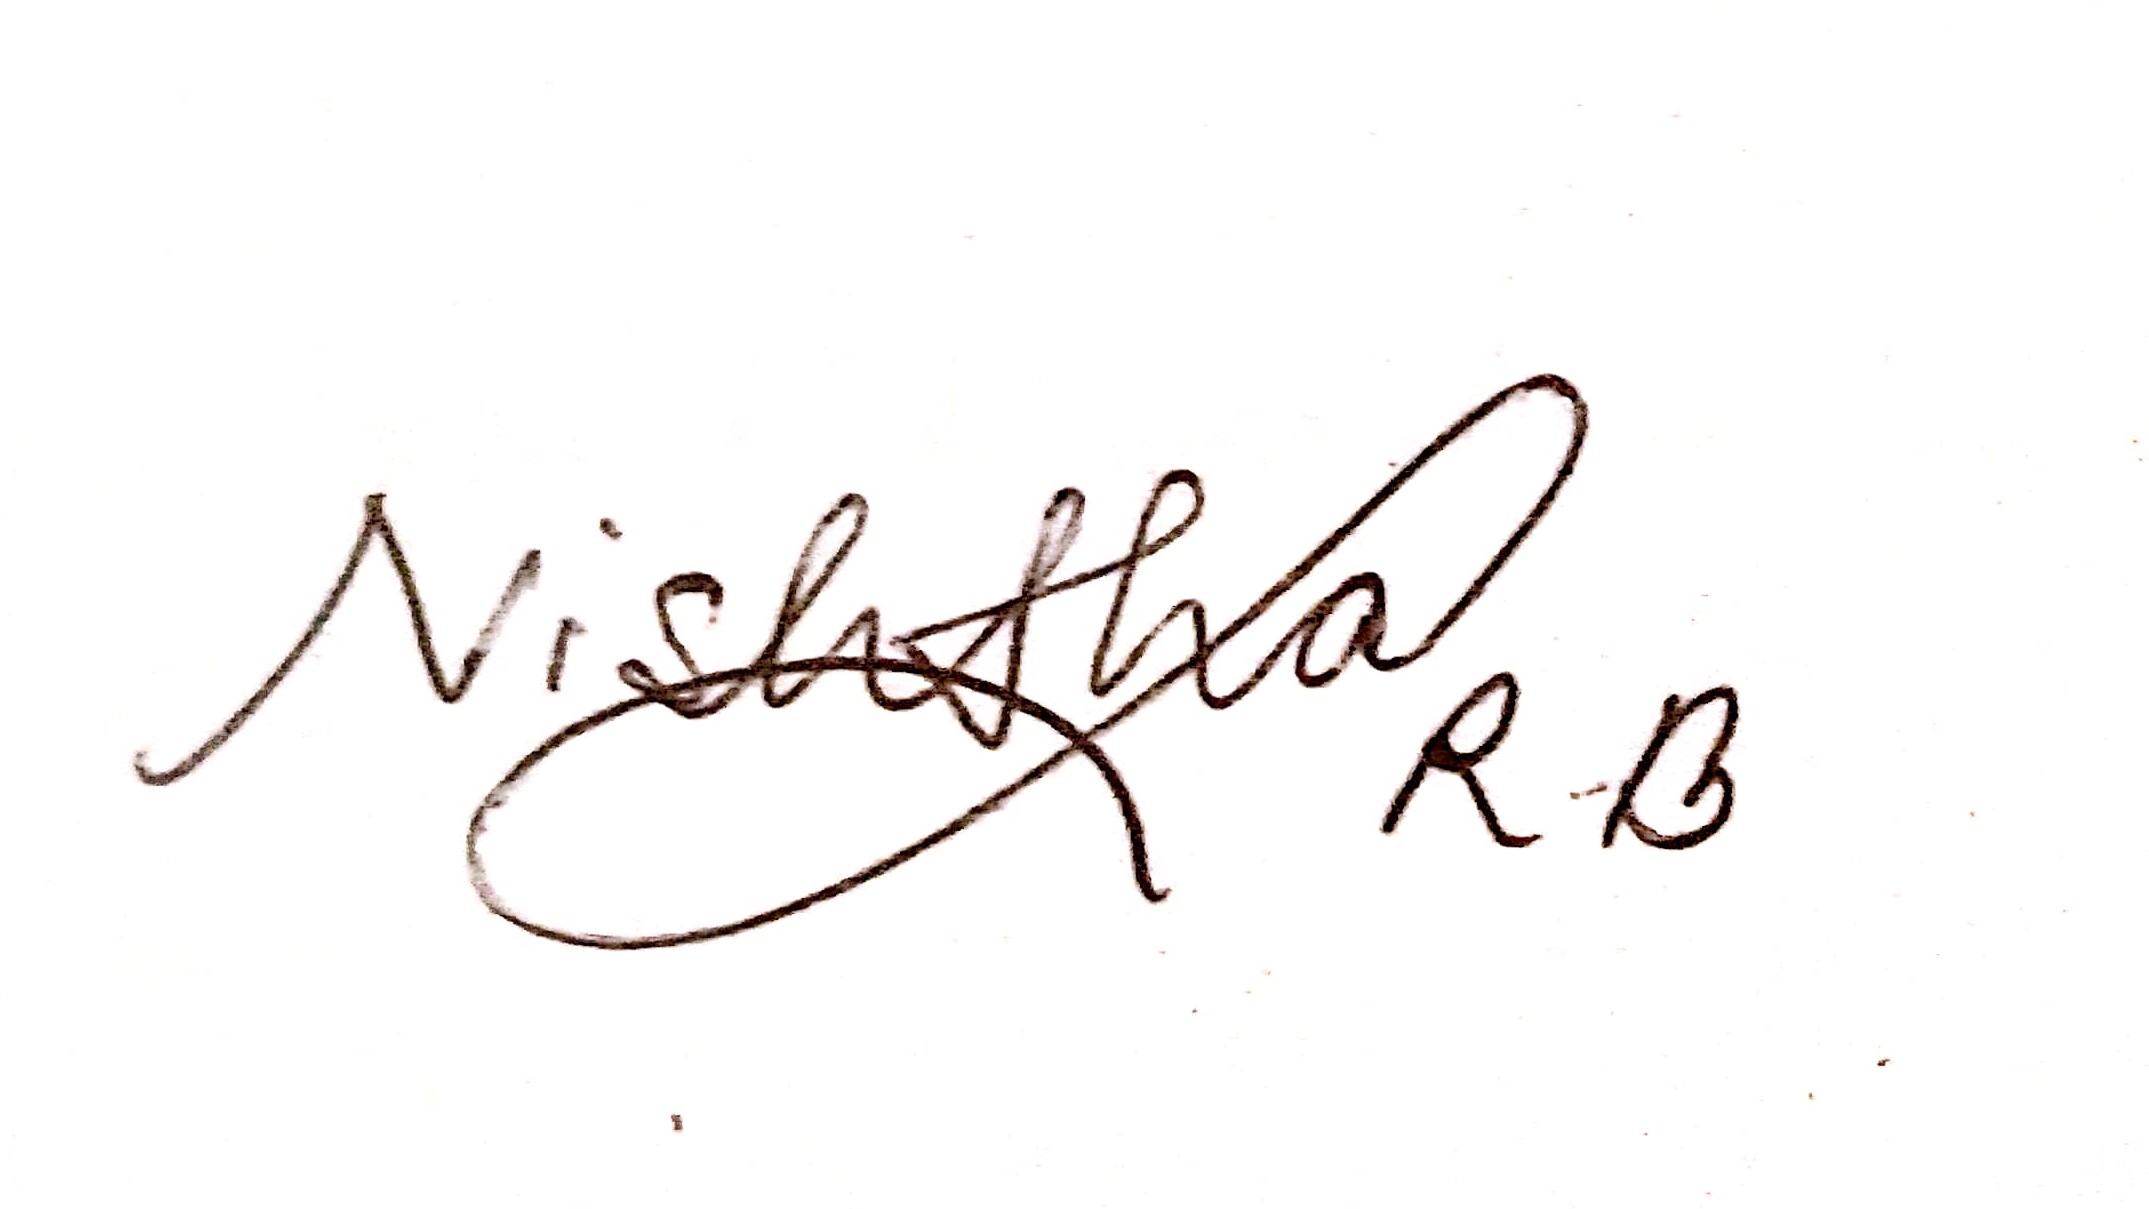 Nishtha
R-B